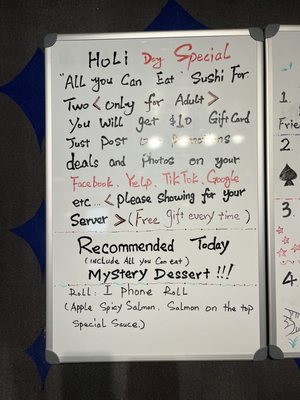 HoLi Day Special
"All you Can Eat" Sushi For
Two < only for Adult >
You Will get $10 Gift Card
Just Post our Promotions
deals and Photos on your
Facebook. Yelp. TikTok. Google
etc.... < please Showing for your
Server > (Free gift every time)
Recommended Today
(include All you Can eat)
Mystery Dessert !!!
Roll: I phone Roll
(Apple Spicy Salmon. Salmon on the top
Special Sauce.)
1.
Frie
2.
3.
4.